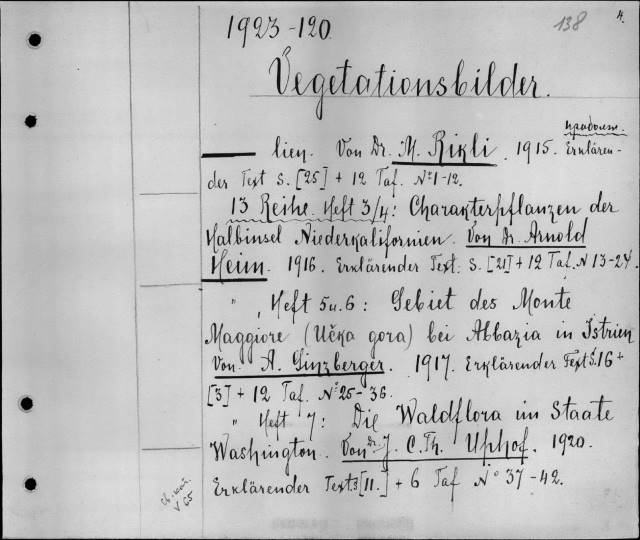 1923-120
138
4.
Vegetationsbilder.
продолж.
lien. Von Dr. M. Rikli. 1915. Erklären-
der Text S. [25] + 12 Taf. № 1-12.
13 Reihe. Heft 3/4: Charakterpflanzen der
Halbinsel Niederkalifornien. Von Dr. Arnold
Heim. 1916. Erklärender Text: S. [21] + 12 Taf. N 13-24.
" , Heft 5 u. 6: Gebiet des Monte
Maggiore (Učka gora) bei Abbazia in Istrien
Von A. Ginzberger. 1917. Erklärender Text S. 16 +
[3] + 12 Taf. № 25-36.
" Heft 7: Die Waldflora im Staate
Washington. Von Dr. J. C. Th. Uphof. 1920.
Erklärender Text S [11.] + 6 Taf № 37-42.
V 65